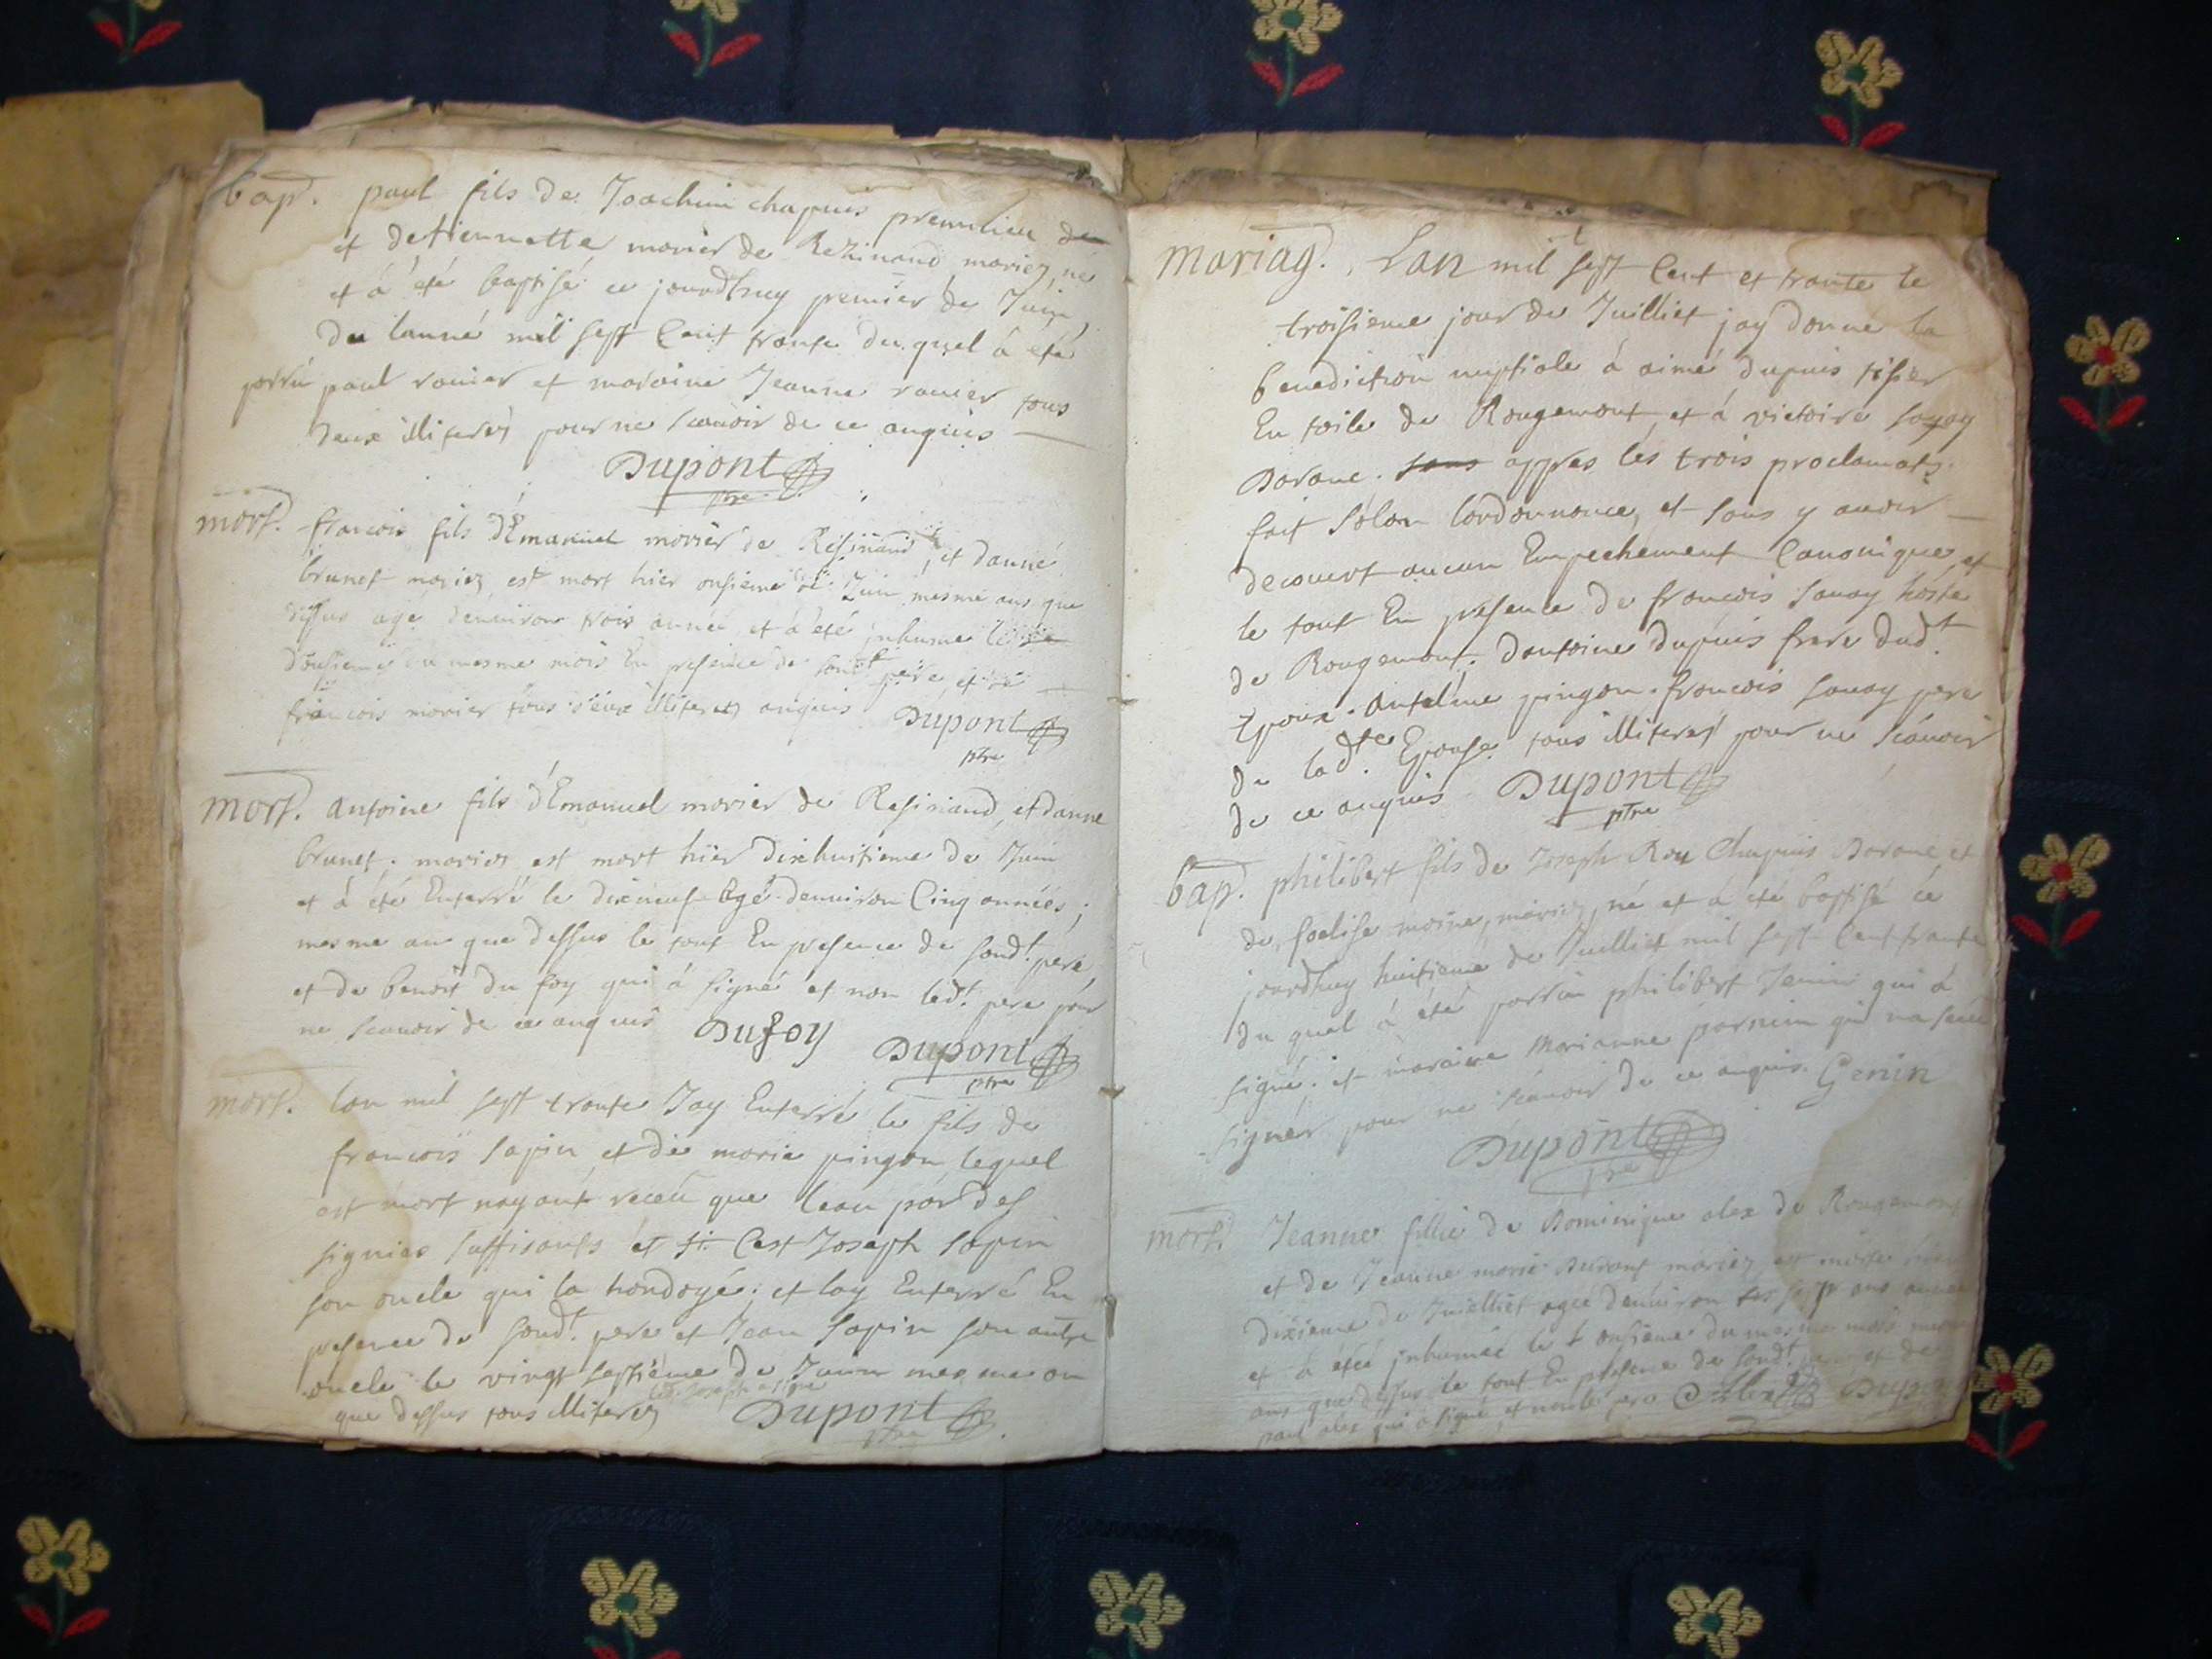 bap. paul fils de Joachim chapuis premilieu de
et detiennette morier de Rezinand mariez, né
et á été baptisé ce jourdhuy premier de Juin
de lanné mil sept Cent trente du quel á été
parrin paul ranier et maraine Jeanne ranier tous
deux illiterez pour ne scavoir de ce anquis
Dupont
ptre
mort. francois fils d'Emanuel morier de Resinand, et danne
brunet mariez est mort hier onsieme de Juin mesme ans que
dessus agé denviron trois année et á été inhume le
dousieme du mesme mois En presence de sond.t pere et de
francois morier tous deux illiterez anquis Dupont
ptre
mort. Antoine fils d'Emanuel morier de Resinand, et danne
brunet. mariez est mort hier dixhuitieme de Juin
et á été Enterré le dixneuf agé denviron Cinq années;
mesme an que dessus le tout En presence de sond.t pere,
et de benoit du foy qui á signé et non led.t pere pour
ne scavoir de ce anquis Dufoy Dupont
ptre
mort. lan mil sept trente Jay Enterré le fils de
francois sapin et de marie pingon lequel
est mort nayant receu que leau par des
signies suffisants et Cest Joseph sapin
son oncle qui la hondoyé; et lay Enterré En
presence de sond.t pere et Jean sapin son autre
oncle le vingt septieme de Juin mesme an
que dessus tous illiterez Joseph a signé Dupont
ptre
Mariag. Lan mil sept Cent et trante le
troisieme jour de Juilliet jay donné la
benediction nuptiale á aimé dupuis tisser
En toile de Rougemont, et á victoire savay
Darane. sans appres les trois proclamats
fait selon lordonnance, et sans y avoir
decouvert aucun Empechement Canonique, et
le tout En presence de francois savay hoste
de Rougemont. dantoine dupuis frere dud.t
Epoux. Antelme pingon. francois savay pere
de lad.te Epouse tous illiterez pour ne scavoir
de ce anquis Dupont
ptre
bap. philibert fils de Joseph Roy Chapuis Darane et
de, moine, mariez, né et á été baptisé ce
jourdhuy huitieme de Juilliet mil sept Cent trante
du quel á été parrin philibert Jenin qui á
signé. et maraine Marianne parnin qui na sceu
signer pour ne scavoir de ce anquis. Genin
Dupont
ptre
mort. Jeanne fillie de Dominique alex de Rougemont
et de Jeanne marie mariez est morte hier
dixieme de Juilliet agée denviron sept ans
et á étéé inhumée le onsieme du mesme mois mesme
ans que dessus le tout En presence de sond.t pere et de
paul alex qui a signé, et non le pere Alex Dupont